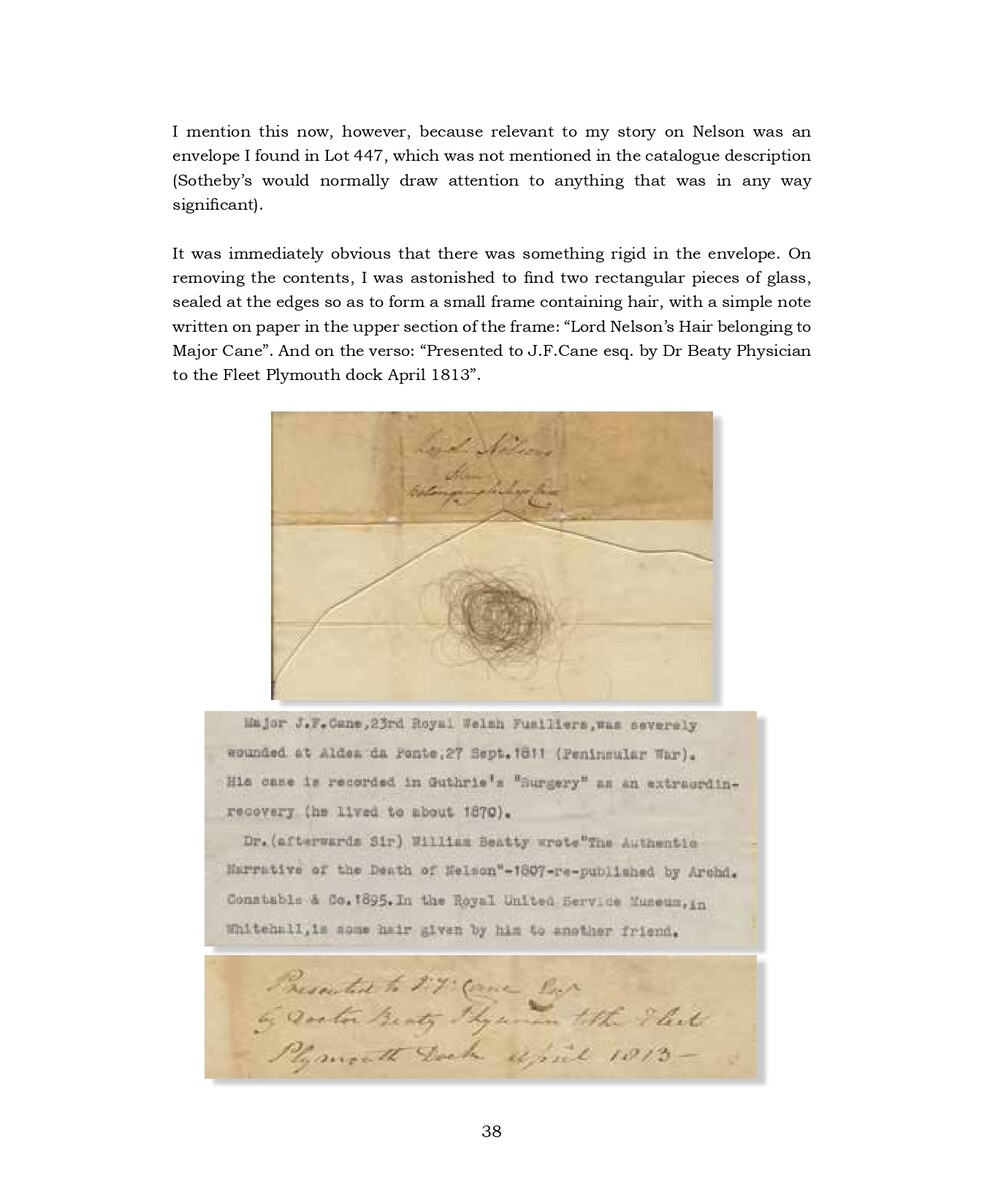 I mention this now, however, because relevant to my story on Nelson was an
envelope I found in Lot 447, which was not mentioned in the catalogue description
(Sotheby’s would normally draw attention to anything that was in any way
significant).
It was immediately obvious that there was something rigid in the envelope. On
removing the contents, I was astonished to find two rectangular pieces of glass,
sealed at the edges so as to form a small frame containing hair, with a simple note
written on paper in the upper section of the frame: “Lord Nelson’s Hair belonging to
Major Cane”. And on the verso: “Presented to J.F.Cane esq. by Dr Beaty Physician
to the Fleet Plymouth dock April 1813”.
Lord Nelsons
Hair
Belonging to Major Cane
Major J.F.Cane,23rd Royal Welsh Fusiliers,was severely
wounded at Aldea da Ponte,27 Sept.1811 (Peninsular War).
His case is recorded in Guthrie's "Surgery" as an extraordin-
recovery (he lived to about 1870).
Dr.(afterwards Sir) William Beatty wrote"The Authentic
Narrative of the Death of Nelson"-1807-re-published by Archd.
Constable & Co.1895.In the Royal United Service Museum,in
Whitehall,is some hair given by him to another friend.
Presented to J.F. Cane Esqr
by Doctor Beaty Physician to the Fleet
Plymouth Dock April 1813-
38